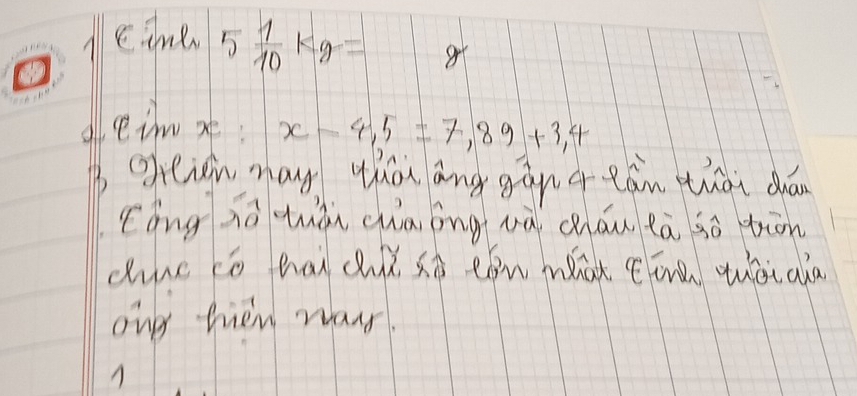 1 Tính 5 1/10 kg =      g
2, Tìm x : x - 4,5 = 7,89 + 3,4
3, Hiện nay tuổi ông gấp 4 lần tuổi cháu
. Tổng số tuổi của ông và cháu là số tròn
chục có hai chữ số lớn nhất Tính tuổi của
ông hiện nay.
1